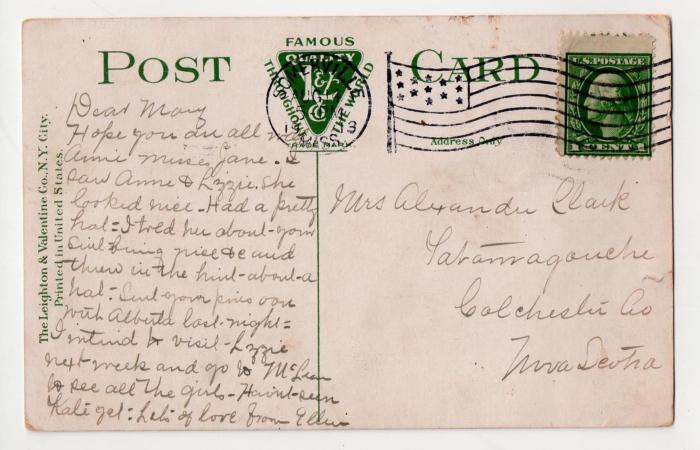 FAMOUS
QUALITY
THROUGHOUT THE WORLD
L & V Co
TRADE MARK
POST CARD
U.S. POSTAGE
1 CENT 1
Address Only
The Leighton & Valentine Co., N.Y. City.
Printed in United States.
Dear Mary
Hope you are all well
Annie misses Jane. I
saw Anne & Lizzie. She
looked nice - Had a pretty
hat = I told her about your
being nice &c and
threw in the hint about a
hat = your
with Alberta last night =
I intend to visit Lizzie
next week and go to McLean
to see all the girls - Havnt seen
Kate yet = Lots of love from Ellen
Mrs Alexander Clark
Tatamagouche
Colchester Co
Nova Scotia